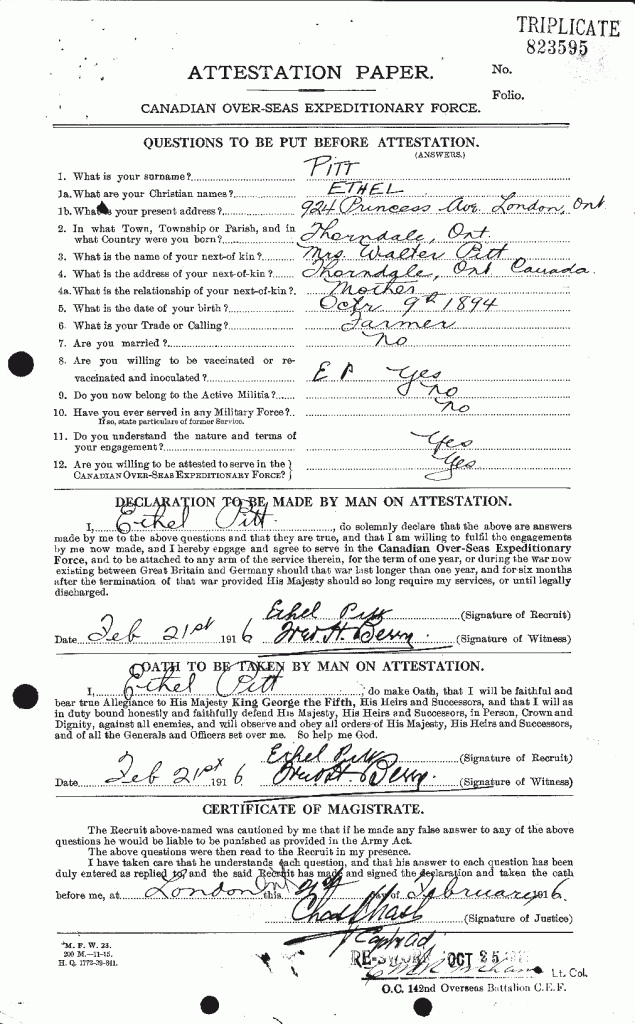 TRIPLICATE
823595
No.
Folio.
ATTESTATION PAPER.
CANADIAN OVER-SEAS EXPEDITIONARY FORCE.
QUESTIONS TO BE PUT BEFORE ATTESTATION.
(ANSWERS.)
1. What is your surname? PITT
1a. What are your Christian names? ETHEL
1b. What is your present address? 924 Princess Ave. London, Ont
2. In what Town, Township or Parish, and in
what Country were you born? Thorndale, Ont.
3. What is the name of your next-of kin? Mrs. Walter Pitt
4. What is the address of your next-of-kin? Thorndale, Ont Canada.
4a. What is the relationship of your next-of-kin? Mother
5. What is the date of your birth? Octr 9th 1894
6. What is your Trade or Calling? Farmer
7. Are you married? No
8. Are you willing to be vaccinated or re-
vaccinated and inoculated? E P Yes
9. Do you now belong to the Active Militia? No
10. Have you ever served in any Military Force? No
If so, state particulars of former Service.
11. Do you understand the nature and terms of
your engagement? Yes
12. Are you willing to be attested to serve in the
CANADIAN OVER-SEAS EXPEDITIONARY FORCE? Yes
DECLARATION TO BE MADE BY MAN ON ATTESTATION.
I, Ethel Pitt, do solemnly declare that the above are answers
made by me to the above questions and that they are true, and that I am willing to fulfil the engagements
by me now made, and I hereby engage and agree to serve in the Canadian Over-Seas Expeditionary
Force, and to be attached to any arm of the service therein, for the term of one year, or during the war now
existing between Great Britain and Germany should that war last longer than one year, and for six months
after the termination of that war provided His Majesty should so long require my services, or until legally
discharged.
Ethel Pitt (Signature of Recruit)
Date Feb 21st 1916 H. Berry. (Signature of Witness)
OATH TO BE TAKEN BY MAN ON ATTESTATION.
I, Ethel Pitt, do make Oath, that I will be faithful and
bear true Allegiance to His Majesty King George the Fifth, His Heirs and Successors, and that I will as
in duty bound honestly and faithfully defend His Majesty, His Heirs and Successors, in Person, Crown and
Dignity, against all enemies, and will observe and obey all orders of His Majesty, His Heirs and Successors,
and of all the Generals and Officers set over me. So help me God.
Ethel Pitt (Signature of Recruit)
Date Feb 21st 1916 H. Berry. (Signature of Witness)
CERTIFICATE OF MAGISTRATE.
The Recruit above-named was cautioned by me that if he made any false answer to any of the above
questions he would be liable to be punished as provided in the Army Act.
The above questions were then read to the Recruit in my presence.
I have taken care that he understands each question, and that his answer to each question has been
duly entered as replied to, and the said Recruit has made and signed the declaration and taken the oath
before me, at London Ont this 21st day of February 1916.
(Signature of Justice)
M. F. W. 23.
200 M.-11-15.
H. Q. 1772-39-841.
RE-SWORN OCT 25
Lt. Col.
O.C. 142nd Overseas Battalion C.E.F.